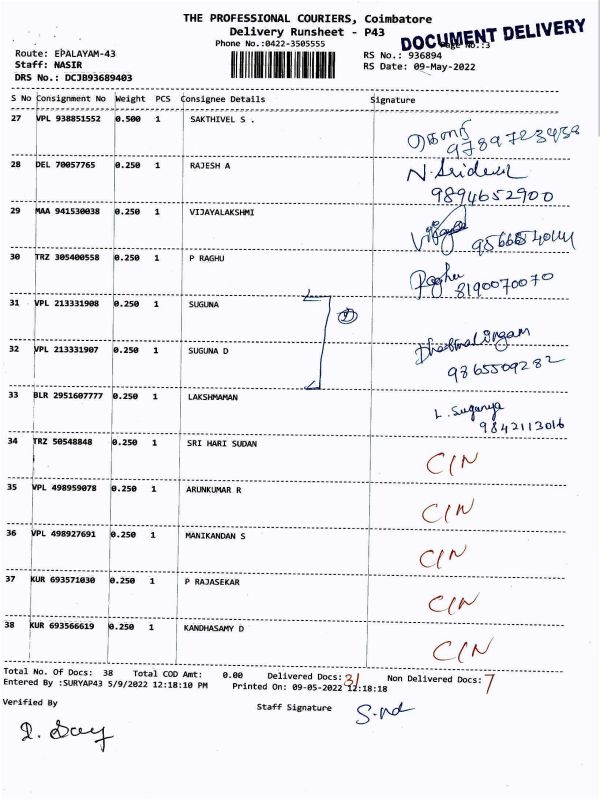 THE PROFESSIONAL COURIERS, Coimbatore
Delivery Runsheet - P43
Phone No.:0422-3505555
DOCUMENT DELIVERY
Page No.:3
Route: EPALAYAM-43
Staff: NASIR
DRS No.: DCJB93689403
RS No.: 936894
RS Date: 09-May-2022
S No Consignment No Weight PCS Consignee Details Signature
27 VPL 938851552 0.500 1 SAKTHIVEL S .
28 DEL 70057765 0.250 1 RAJESH A N.Sridevi
9894652900
29 MAA 941530038 0.250 1 VIJAYALAKSHMI
30 TRZ 305400558 0.250 1 P RAGHU Raghu
8190070070
31 VPL 213331908 0.250 1 SUGUNA
32 VPL 213331907 0.250 1 SUGUNA D
9865509282
33 BLR 2951607777 0.250 1 LAKSHMAMAN L. Suganya
9842113016
34 TRZ 50548848 0.250 1 SRI HARI SUDAN C/N
35 VPL 498959078 0.250 1 ARUNKUMAR R C/N
36 VPL 498927691 0.250 1 MANIKANDAN S C/N
37 KUR 693571030 0.250 1 P RAJASEKAR C/N
38 KUR 693566619 0.250 1 KANDHASAMY D C/N
Total No. Of Docs: 38 Total COD Amt: 0.00 Delivered Docs: 31 Non Delivered Docs: 7
Entered By :SURYAP43 5/9/2022 12:18:10 PM Printed On: 09-05-2022 12:18:18
Verified By Staff Signature